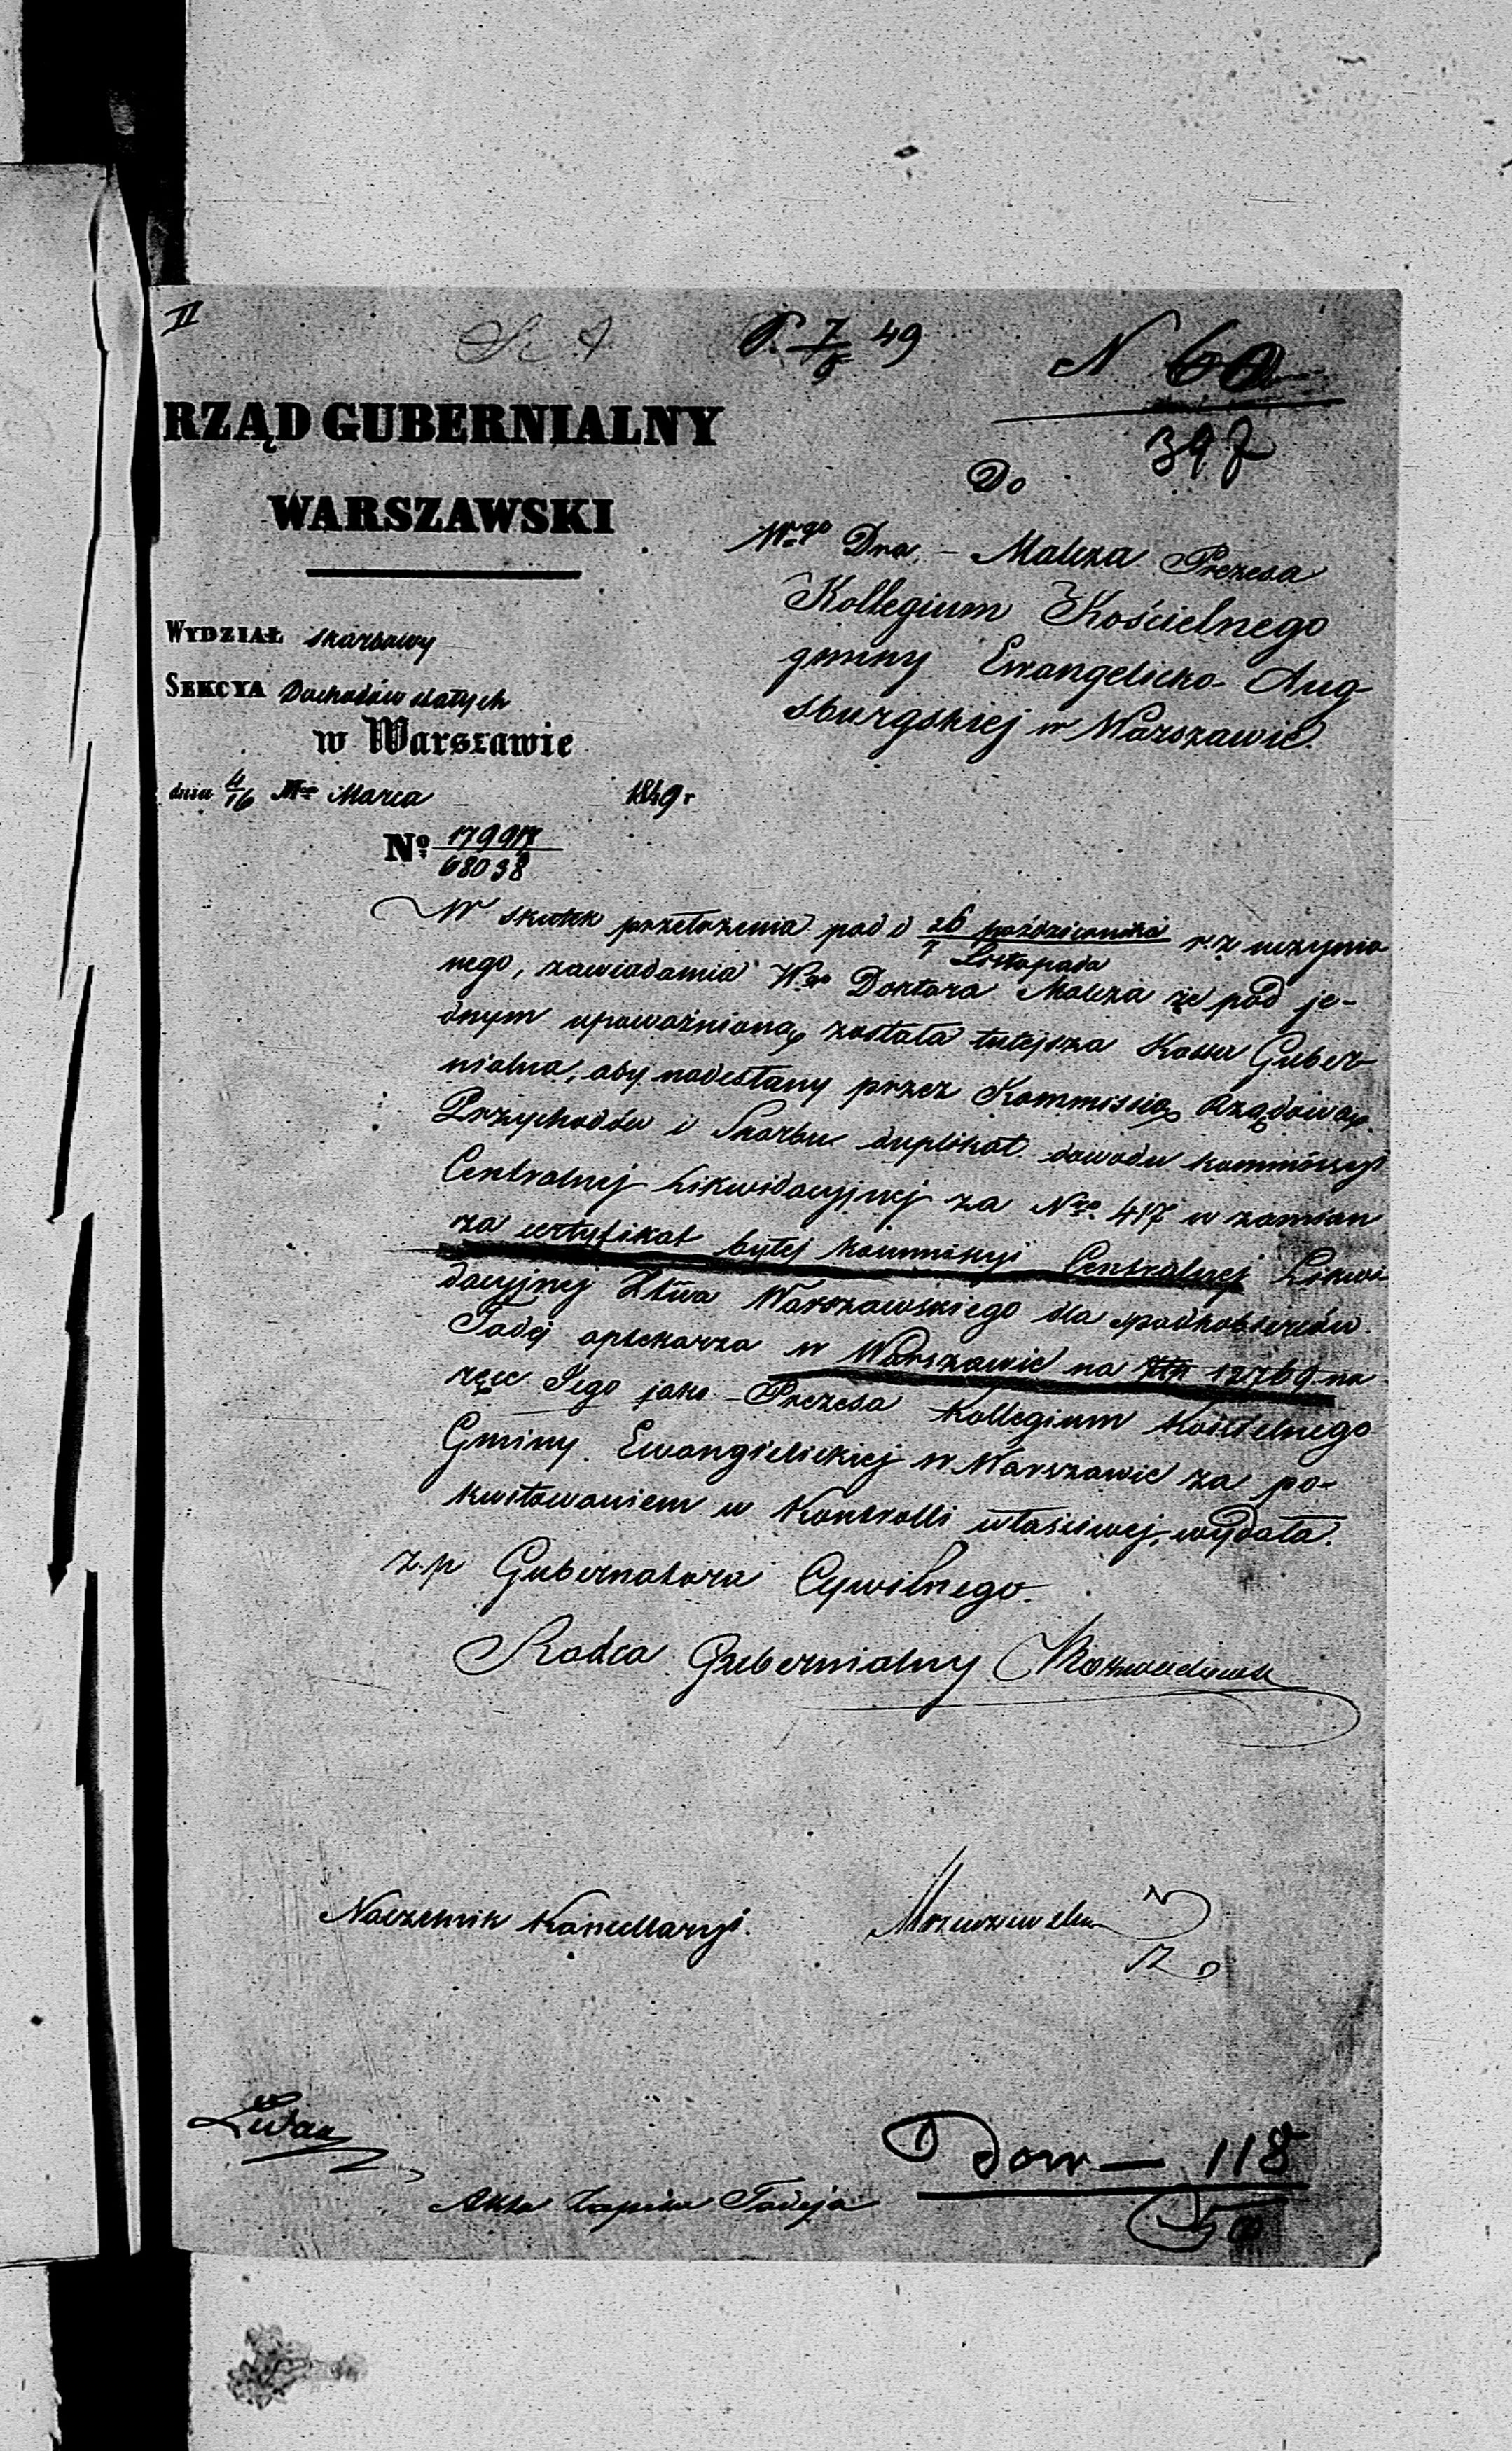 II
P. 7/5 49
N 60
397
RZĄD GUBERNIALNY
WARSZAWSKI
Do
Wgo Dra Malcza Prezesa
Kollegium Kościelnego
gminy Ewangelicko-Aug
sburgskiej w Warszawie.
WYDZIAŁ skarbowy
SEKCYA Dochodów stałych
w Warszawie
dnia 4/16 Mca Marca 1849 r
No. 179917/68038
W skutek przełożenia pod d 26 października/7 Listopada r. z. uczynio
nego, zawiadamia Wgo Doktora Malcza że pod je-
dnym upoważnioną została tutejsza Kassa Guber-
nialna, aby nadesłany przez Kommissią Rządową
Przychodów i Skarbu duplikat dowodu kommissyi
Centralnej Likwidacyjnej za Nro 417 w zamian
za certyfikat byłej kommissyi Centralnej Likwi
dacyjnej Xtwa Warszawskiego dla spadkobierców
Fadej aptekarza w Warszawie na Złp 12769 na
ręce Jego jako Prezesa Kollegium Kościelnego
Gminy Ewangielickiej w Warszawie za po-
kwitowaniem w Kontrolli właściwej, wydała.
z. p Gubernatora Cywilnego.
Radca Gubernialny
Naczelnik Kancellaryi.
Akta Zapisu Fadeja
Dow — 118
50